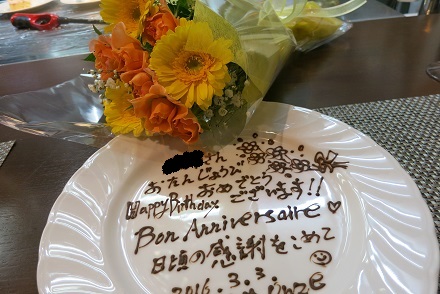 さん
おたんじょうび
おめでとう
ございます!!
Happy Birthday
Bon Anniversaire
日頃の感謝をこめて
2016.3.3